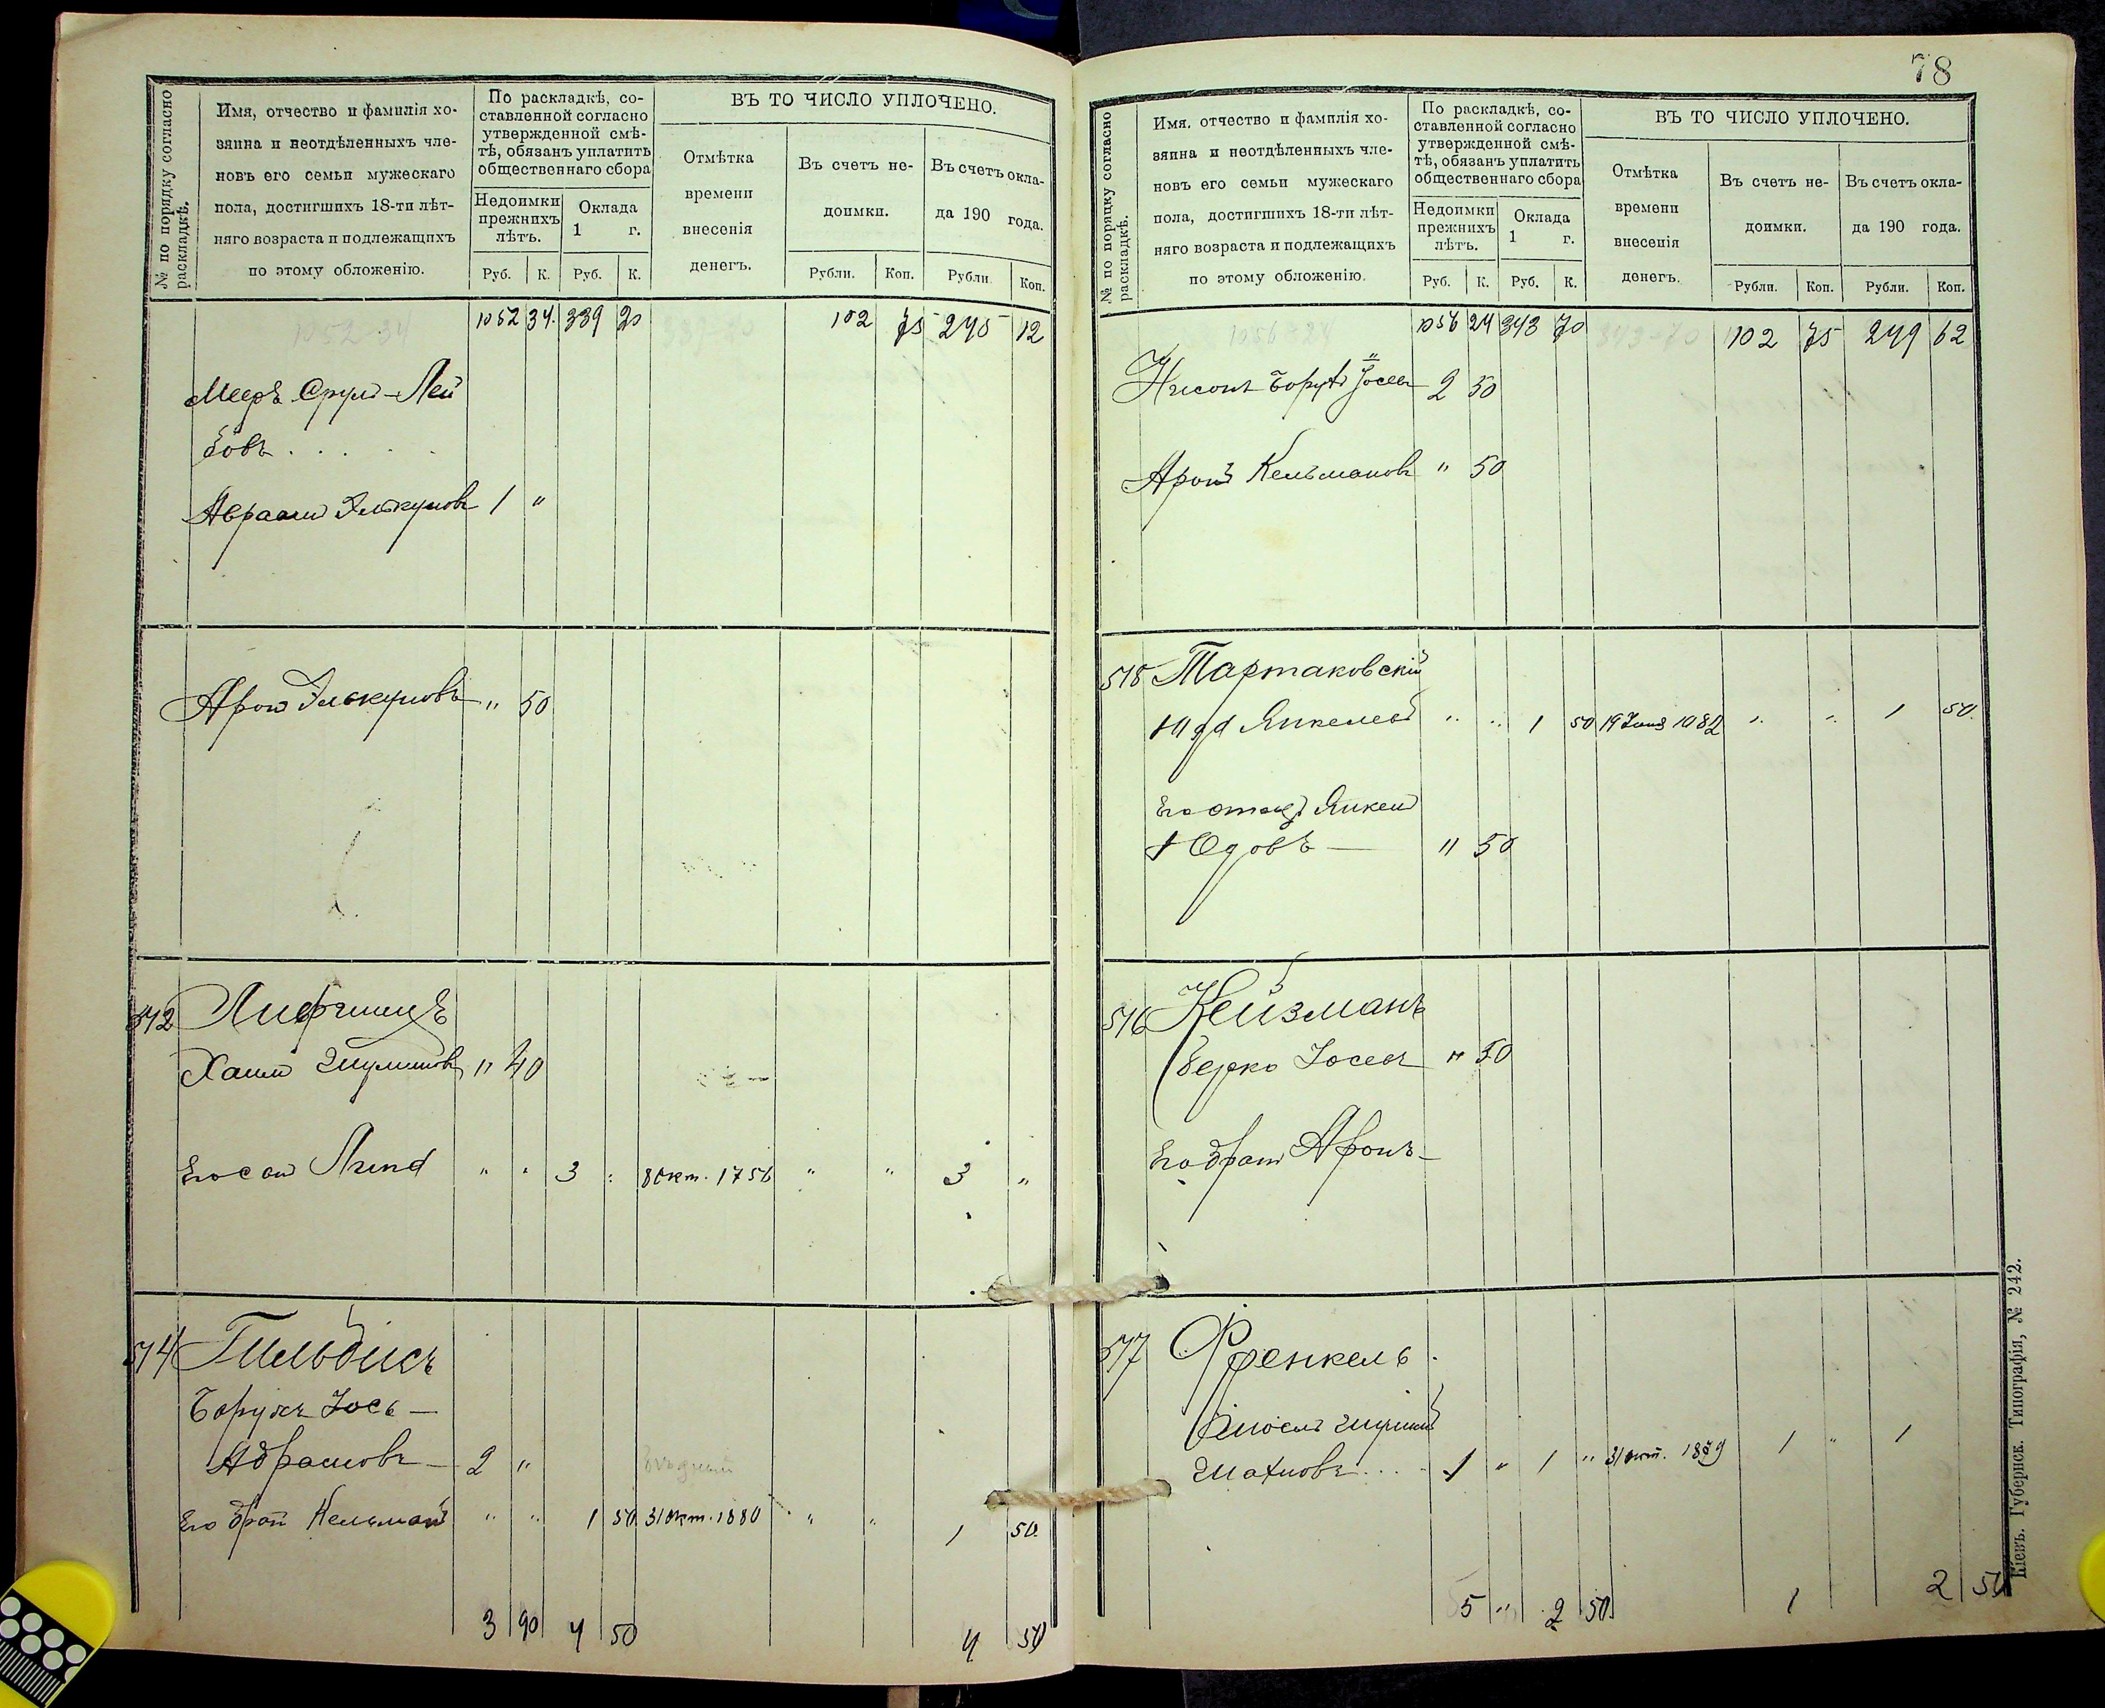 № по порядку согласно раскладкѣ.
Имя, отчество и фамилія хо-
зяина и неотдѣленныхъ чле-
новъ его семьи мужескаго
пола, достигшихъ 18-ти лѣт-
няго возраста и подлежащихъ
по этому обложенію.
По раскладкѣ, со-
ставленной согласно
утвержденной смѣ-
тѣ, обязанъ уплатить
общественнаго сбора
Недоимки прежнихъ лѣтъ.
Оклада 1 г.
Руб. К. Руб. К.
ВЪ ТО ЧИСЛО УПЛОЧЕНО.
Отмѣтка времени внесенія денегъ.
Въ счетъ не- доимки.
Въ счетъ окла- да 190 года.
Рубли. Коп. Рубли. Коп.
1052-34 1052 34 339 20 339-20 102 75 245 12
Мееръ Срулъ-Лей
бовъ . . . .
Авраамъ Элькуновъ 1 "
Аронъ Элькуновъ " 50
572 Лифшицъ
Хаимъ Шулимовъ " 40
Его сынъ " " 3 " 8 Окт. 1756 " " 3 "
574 Гильбисъ
Борухъ Іось —
Абрамовъ — 2 "
Его братъ Кельманъ " " 1 50 31 Окт. 1880 " " 1 50
3 90 4 50 4 50
78
№ по порядку согласно раскладкѣ.
Имя, отчество и фамилія хо-
зяина и неотдѣленныхъ чле-
новъ его семьи мужескаго
пола, достигшихъ 18-ти лѣт-
няго возраста и подлежащихъ
по этому обложенію.
По раскладкѣ, со-
ставленной согласно
утвержденной смѣ-
тѣ, обязанъ уплатить
общественнаго сбора
Недоимки прежнихъ лѣтъ.
Оклада 1 г.
Руб. К. Руб. К.
ВЪ ТО ЧИСЛО УПЛОЧЕНО.
Отмѣтка времени внесенія денегъ.
Въ счетъ не- доимки.
Въ счетъ окла- да 190 года.
Рубли. Коп. Рубли. Коп.
1056-24 1056 24 343 70 343-70 102 75 249 62
Нисонъ Борухъ Іосев 2 50
Аронъ Кельмановъ " 50
575 Тартаковскій
Юдъ Янкелевъ " " 1 50 19 1082 " " 1 50
Его отецъ Янкель
Юдовъ — " 50
576 Нейзманъ
Берко Іосевъ " 50
Его братъ Аронъ —
577 Френкель
Шулимъ
Шахновъ . . . 1 " 1 " 31 окт. 1879 1 " 1
5 " 2 50 1 2 50
Кіевъ. Губернск. Типографія, № 242.